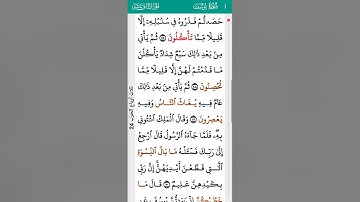 حَصَدتُّمْ فَذَرُوهُ فِي سُنۢبُلِهِۦٓ إِلَّا
قَلِيلًا مِّمَّا تَأْكُلُونَ ۝ ثُمَّ يَأْتِي
مِنۢ بَعْدِ ذَٰلِكَ سَبْعٌ شِدَادٌ يَأْكُلْنَ
مَا قَدَّمْتُمْ لَهُنَّ إِلَّا قَلِيلًا مِّمَّا
تُحْصِنُونَ ۝ ثُمَّ يَأْتِي مِنۢ بَعْدِ ذَٰلِكَ
عَامٌ فِيهِ يُغَاثُ النَّاسُ وَفِيهِ
يَعْصِرُونَ ۝ وَقَالَ الْمَلِكُ ائْتُونِي
بِهِۦ فَلَمَّا جَاءَهُ الرَّسُولُ قَالَ ارْجِعْ
إِلَىٰ رَبِّكَ فَسْـَٔلْهُ مَا بَالُ النِّسْوَةِ
الَّٰتِي قَطَّعْنَ أَيْدِيَهُنَّ إِنَّ رَبِّي
بِكَيْدِهِنَّ عَلِيمٌ ۝ قَالَ مَا